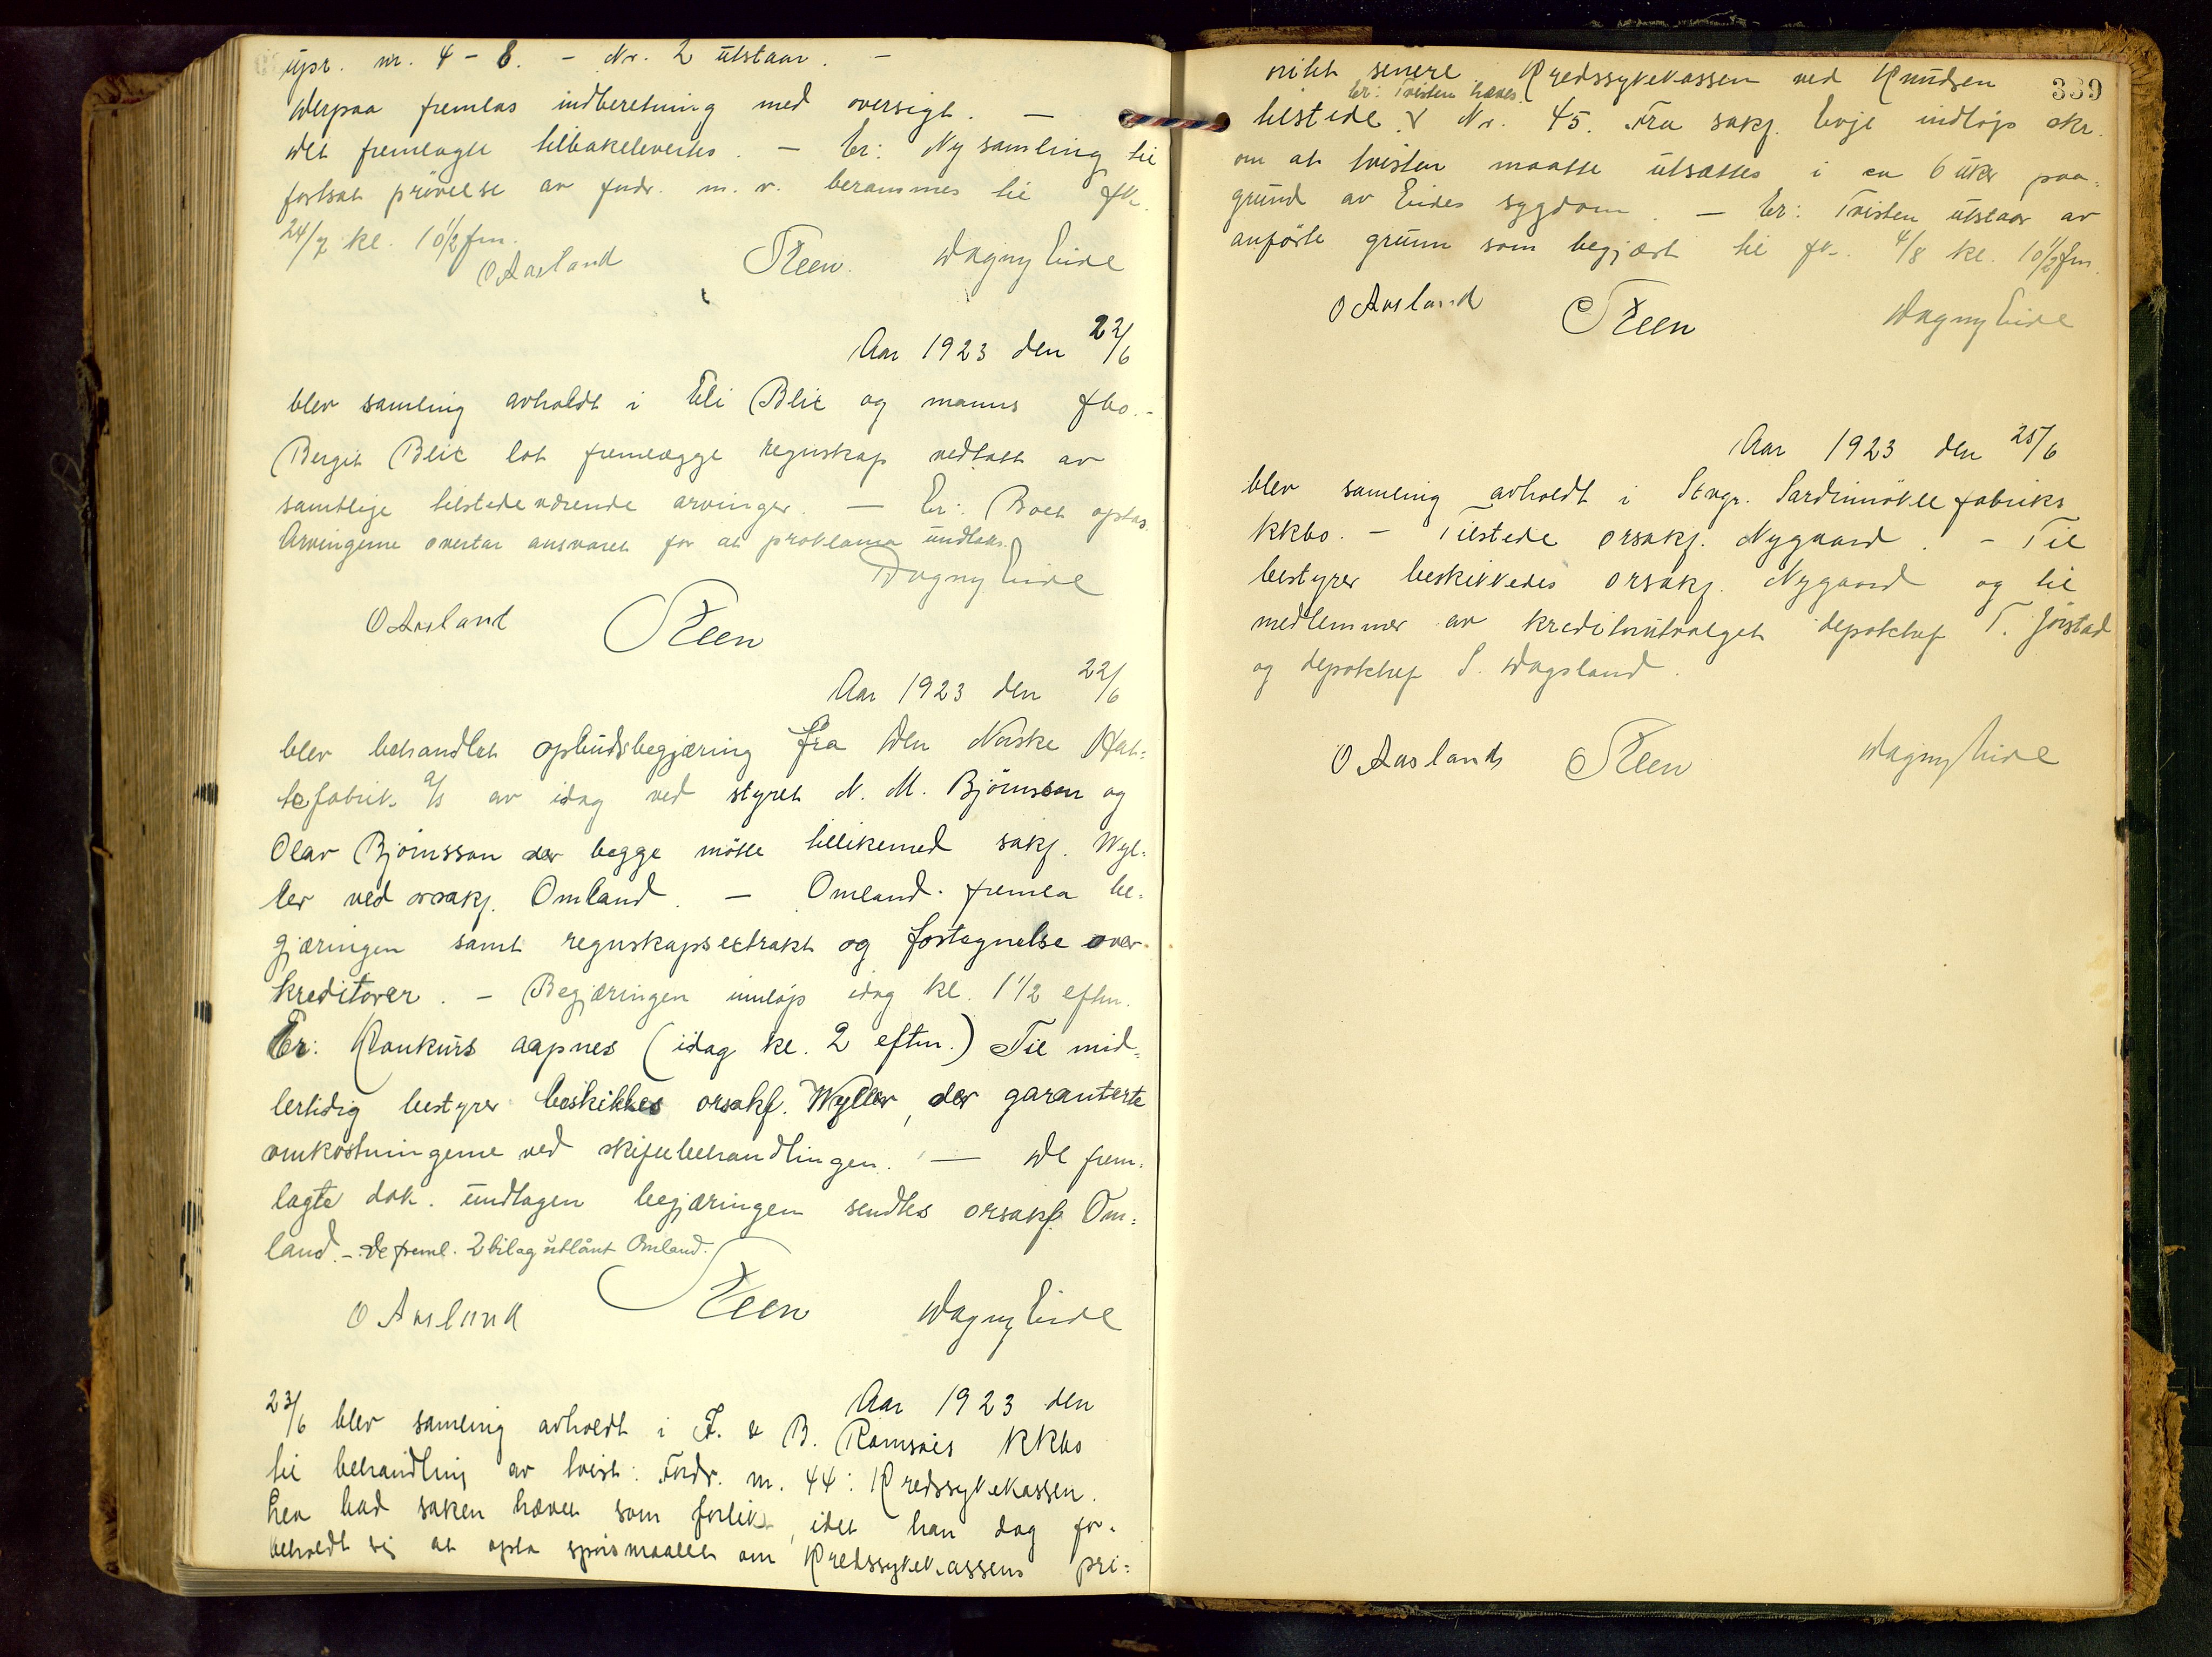 upr. nr. 4 - 8. - Nr. 2 utstaar. -
Derpaa fremlas indberetning med oversigt. -
Det fremlagte tilbakelevertes. - Er: Ny samling til
fortsat prövelse av fordr. m. v. berammes til fk.
24/7 kl. 10 1/2 fm.
O Aasland Steen Dagny Eide
Aar 1923 den 22/6
blev samling avholdt i Eli Blix og manns fbo.-
Bergit Blix lot fremlægge regnskap vedtatt av
samtlige tilstedeværende arvinger. - Er: Boet optas.
Arvingerne overtar ansvaret for at proklama undlates.
Dagny Eide
O Aasland Steen
Aar 1923 den 22/6
blev behandlet opbudsbegjæring fra Den Norske Hat=
tefabrik a/s av idag ved styret N. M. Björnsson og
Olav Björnsson der begge mötte tillikemed sakf. Wyl=
ler ved orsakf. Omland. - Omland fremla be=
gjæringen samt regnskapsextrakt og fortegnelse over
kreditorer. - Begjæringen innlöp idag kl. 1 1/2 eftm.
Er: Konkurs aapnes (idag kl. 2 eftm.) Til mid=
lertidig bestyrer beskikkes orsakf. Wyller, der garanterte
omkostningerne ved skiftebehandlingen. - De frem=
lagte dok. undtagen begjæringen sendtes orsakf. Om=
land. - De freml. 2 bilag utlånt Omland.
O Aasland Steen Dagny Eide
Aar 1923 den
23/6 blev samling avholdt i F. & B. Ramsvis KKbo
til behandling av tvist: Fordr. nr. 44: Kredssykekassen.
bad saken hævet som forlikt, idet han dog for=
beholdt sig at opta spörsmaalet om Kredssykekassens pri=
339
oritet senere. Kredssykekassen ved Knudsen
Er: Tvisten hæves.
tilstede. V Nr. 45. Fra sakf. Eoje indlöp skr.
om at tvisten maatte utsættes i ca 6 uker paa=
grund av Eides sygdom. - Er: Tvisten utstaar av
anförte grunn som begjært til fk. 4/8 kl. 10 1/2 fm.
O Aasland Steen Dagny Eide
Aar 1923 den 25/6
blev samling avholdt i Stvgr. Sardinnökle fabriks
KKbo. - Tilstede orsakf. Nygaard. - Til
bestyrer beskikkedes orsakf. Nygaard og til
medlemmer av kreditorutvalget depotchef T. Jörstad
og depotchef S. Dagsland.
O Aasland Steen Dagny Eide